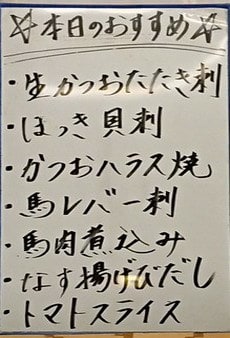 ☆本日のおすすめ☆
・生かつおたたき刺
・ほっき貝刺
・かつおハラス焼
・馬レバー刺
・馬肉煮込み
・なす揚げびだし
・トマトスライス